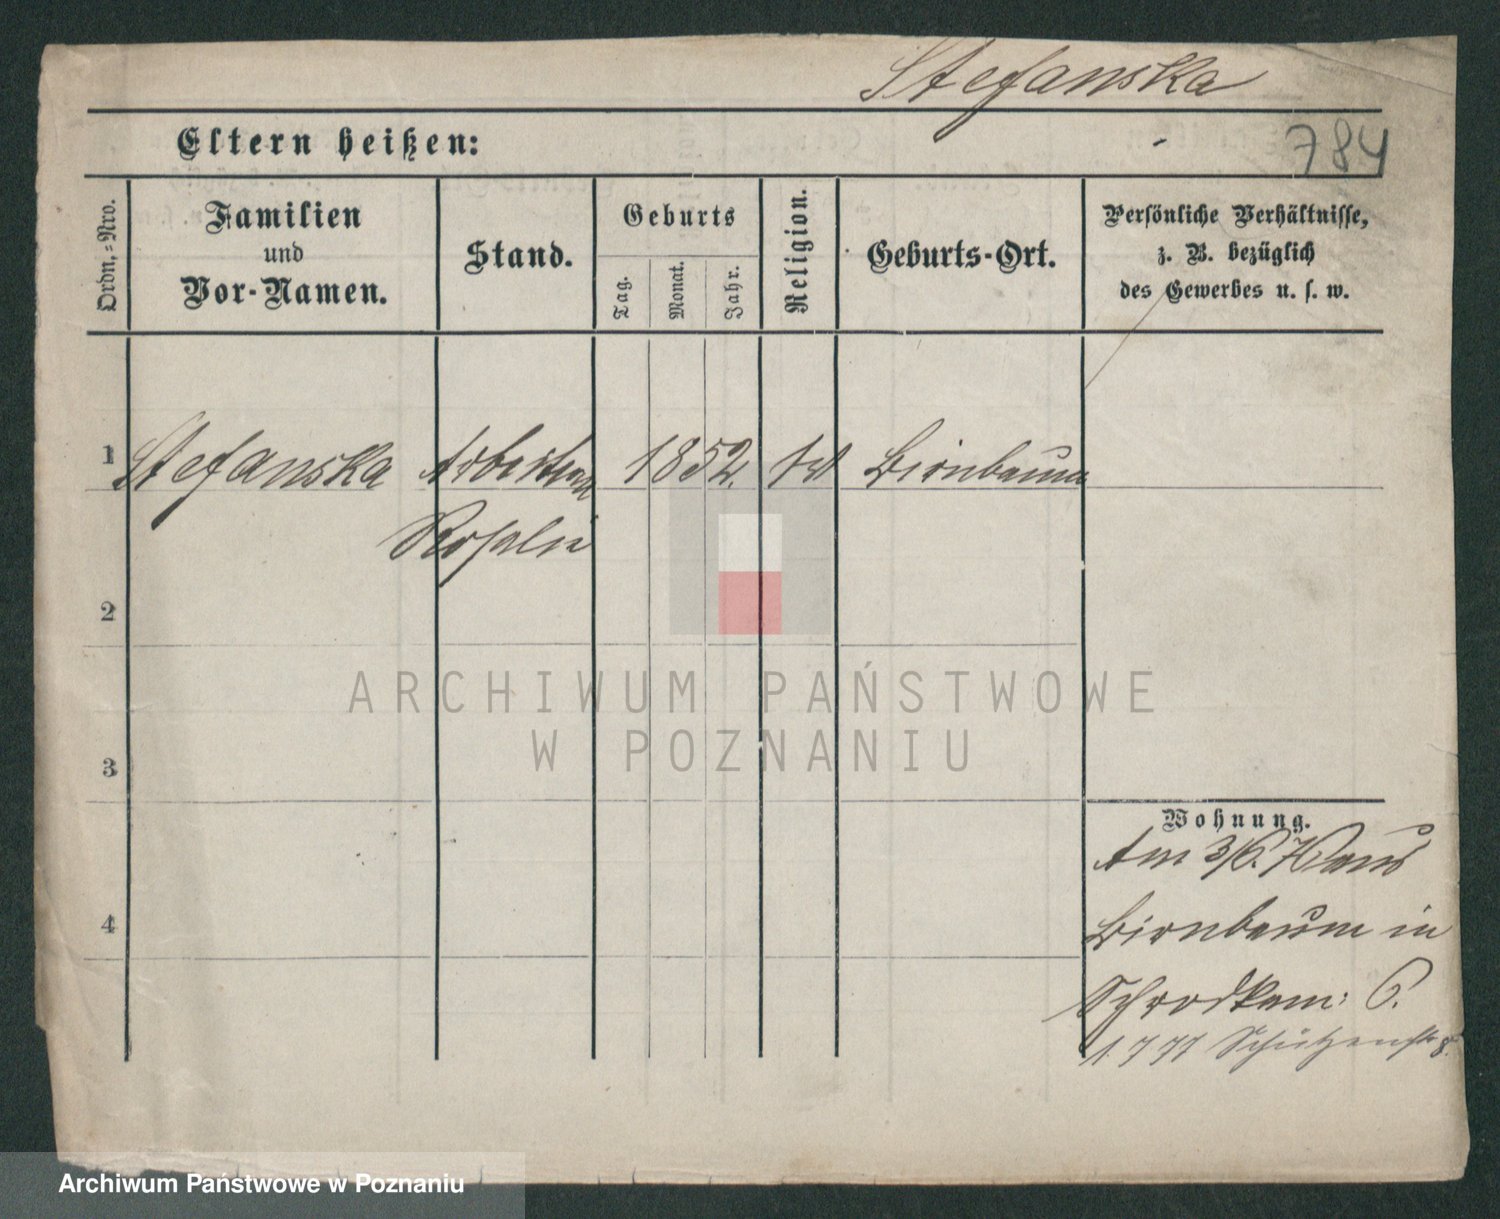 Stefanska
784
Eltern heißen:
Ordn.-Nro.
Familien
und
Vor-Namen.
Stand.
Geburts
Tag.
Monat.
Jahr.
Religion.
Geburts-Ort.
Persönliche Verhältnisse,
z. B. bezüglich
des Gewerbes u. s. w.
1 Stefanska 1852. Birnbaum
Rosalie
2
ARCHIWUM PAŃSTWOWE
W POZNANIU
3
Wohnung.
Am 3/6. 76 aus
4
Birnbaum in
6.
1 7 77 Schützenstr 8.
Archiwum Państwowe w Poznaniu